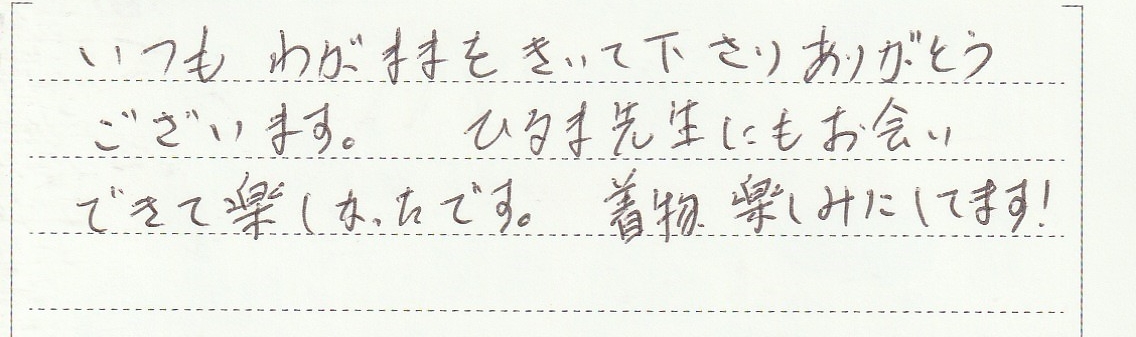 いつも わがままを きいて下さりありがとう
ございます。 ひるま先生にもお会い
できて楽しかったです。 着物、楽しみにしてます!